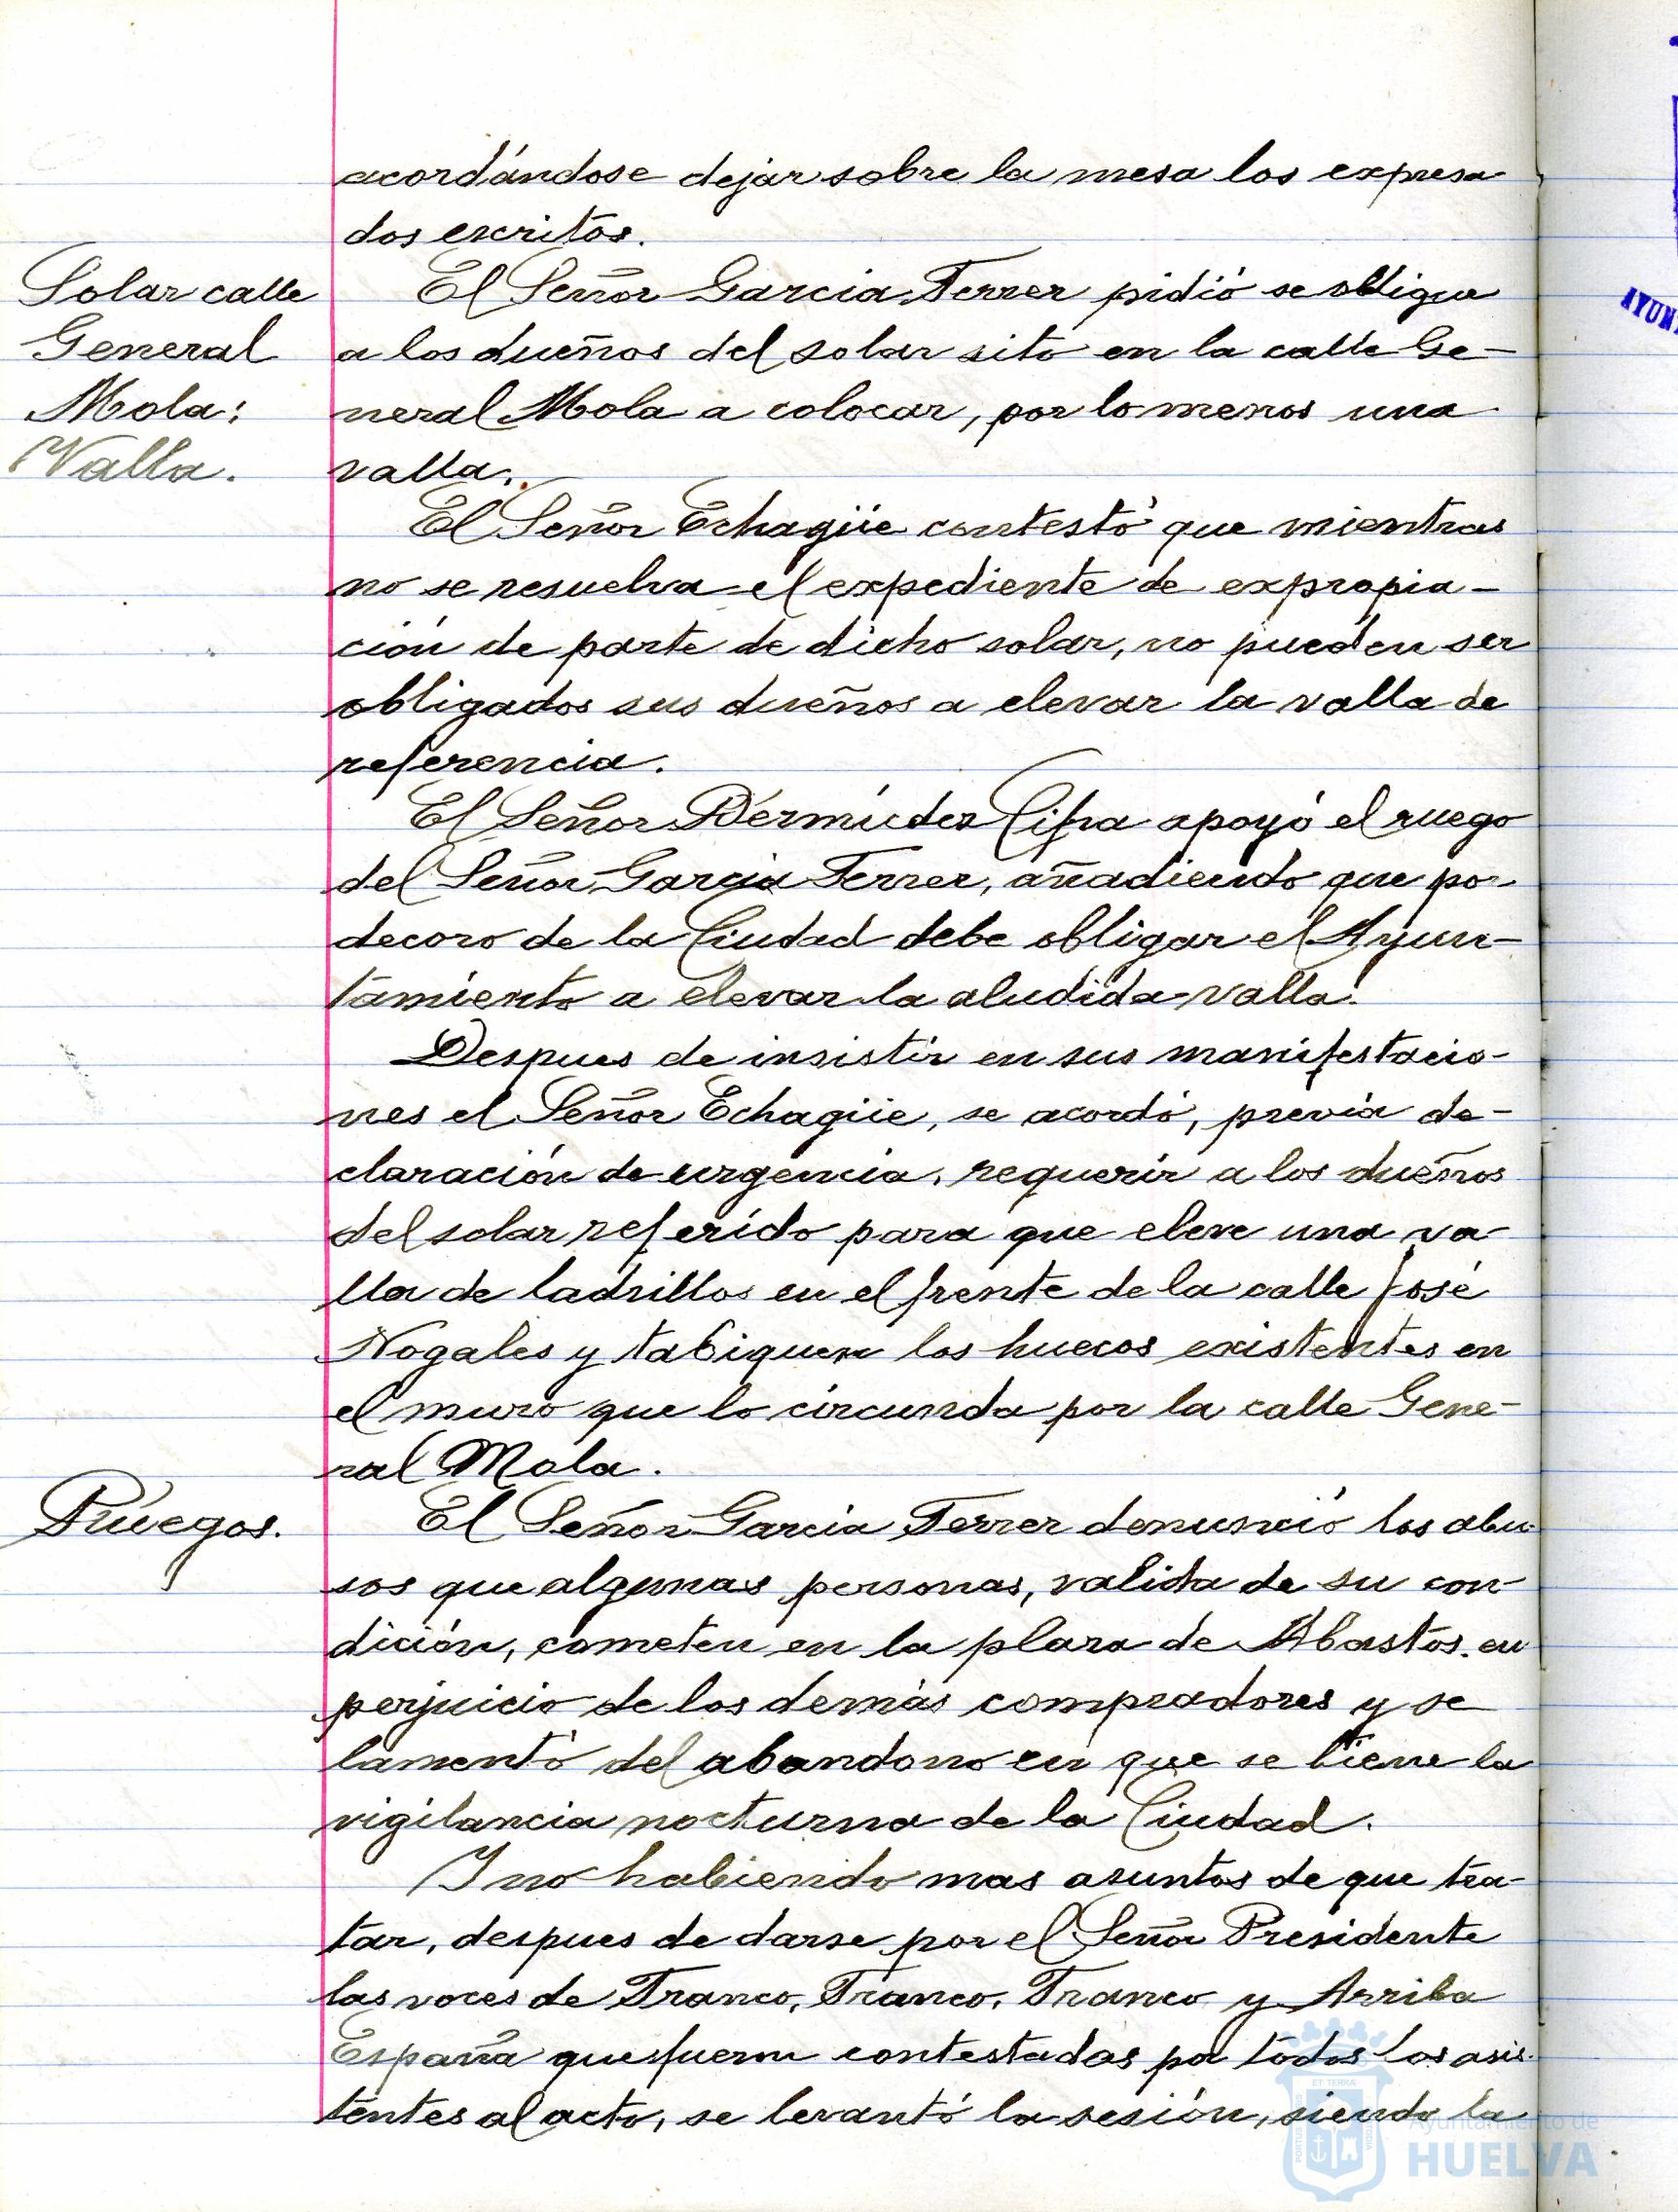 acordándose dejar sobre la mesa los expresa-
dos escritos.
Solar calle
General
Mola:
Valla.
El Señor Garcia Ferrer pidió se obligue
a los dueños del solar sito en la calle Ge-
neral Mola a colocar, por lo menos una
valla.
El Señor Echagüe contestó que mientras
no se resuelva el expediente de expropia-
ción de parte de dicho solar, no pueden ser
obligados sus dueños a elevar la valla de
referencia.
El Señor Bermúdez Cifra apoyó el ruego
del Señor Garcia Ferrer, añadiendo que por
decoro de la Ciudad debe obligar el Ayun-
tamiento a elevar la aludida valla.
Despues de insistir en sus manifestacio-
nes el Señor Echagüe, se acordó, previa de-
claración de urgencia, requerir a los dueños
del solar referido para que eleve una va-
lla de ladrillos en el frente de la calle José
Nogales y tabiquen los huecos existentes en
el muro que lo circunda por la calle Gene-
ral Mola.
Ruegos.
El Señor Garcia Ferrer denunció los abu-
sos que algunas personas, valida de su con-
dición, cometen en la plaza de Abastos, en
perjuicio de los demás compradores y se
lamentó del abandono en que se tiene la
vigilancia nocturna de la Ciudad.
Y no habiendo mas asuntos de que tra-
tar, despues de darse por el Señor Presidente
las voces de Franco, Franco, Franco y Arriba
España que fueron contestadas por todos los asis-
tentes al acto, se levantó la sesión, siendo la
AYUN
Ayuntamiento de
HUELVA